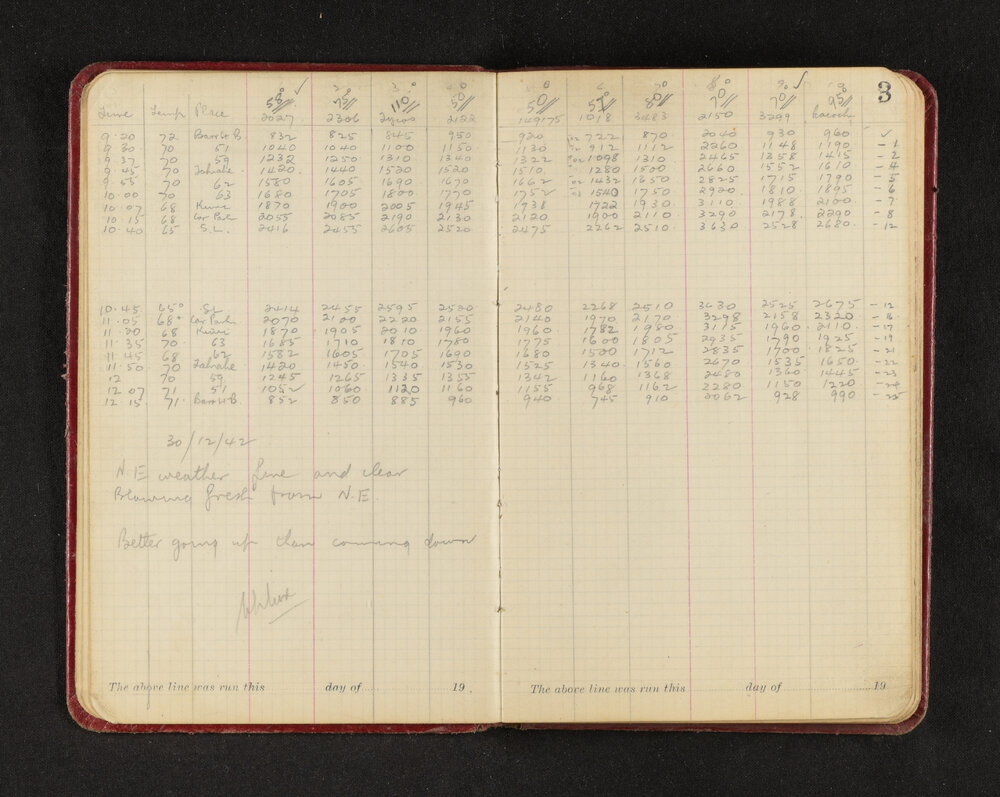 3
58 75 110 50 50 51 80 70 70 95
Time Temp Place 2027 2306 Tycos 2122 149175 1018 3483 2150 3299
9.20 72 832 825 845 950 920 722 870 2040 930 960 ✓
9.30 70 51 1040 1040 1100 1150 1130 912 1112 2260 1148 1190 -1
9.37 70 59 1232 1250 1310 1340 1322 1098 1310 2465 1358 1415 -2
9.45 70 1420 1440 1520 1520 1510 1280 1500 2660 1552 1610 -4
9.55 70 62 1580 1605 1690 1670 1662 1432 1650 2825 1715 1790 -5
10.00 70 63 1680 1705 1800 1770 1752 1540 1750 2920 1810 1895 -6
10.07 68 1870 1900 2005 1945 1938 1722 1930 3110 1988 2100 -7
10.15 68 Car Pk 2055 2085 2190 2130 2120 1900 2110 3290 2178 2290 -8
10.40 65 S.L. 2416 2455 2605 2520 2475 2262 2510 3630 2528 2680 -12
10.45 65° SL 2414 2455 2595 2520 2480 2268 2510 3630 2525 2675 -12
11.05 68° Car Park 2070 2100 2220 2155 2140 1970 2170 3298 2158 2320
11.20 68 1870 1905 2010 1960 1960 1782 1980 3115 1960 2110 -17
11.35 70 63 1685 1710 1810 1780 1775 1600 1805 2935 1790 1925 -19
11.45 68 62 1582 1605 1705 1690 1680 1500 1712 2835 1700 1825 -21
11.50 70 1420 1450 1540 1530 1525 1340 1560 2670 1535 1650 -22
12 70 59 1245 1265 1335 1355 1342 1160 1368 2480 1360 1445 -23
12.07 71 51 1052 1060 1120 1160 1155 968 1162 2280 1150 1220 -24
12.15 71 852 850 885 960 940 745 910 2062 928 990 -25
30/12/42
N.E weather fine and clear
Blowing fresh from N.E.
Better going up than coming down
The above line was run this day of 19 .
The above line was run this day of 19